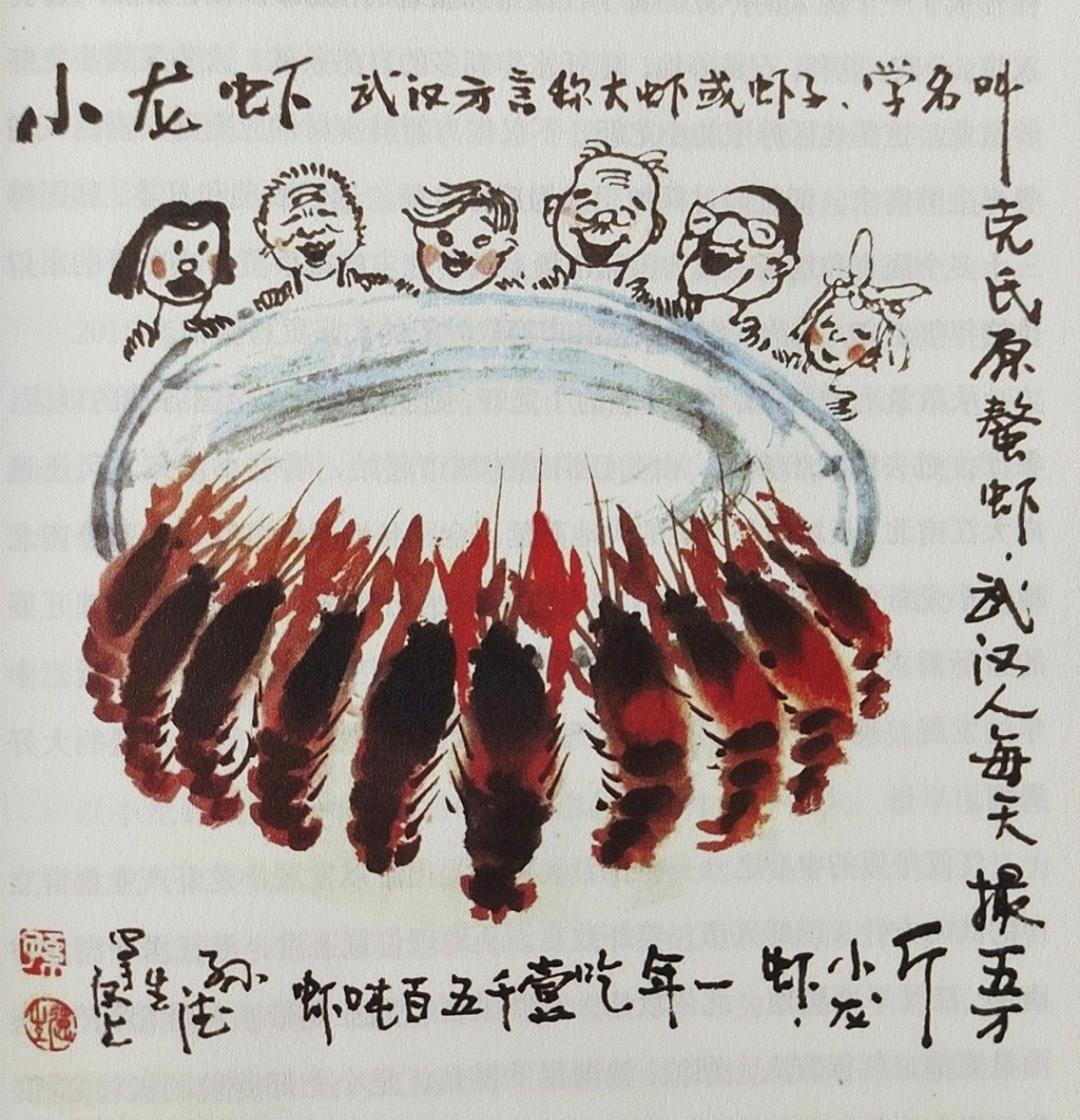 小龙虾 武汉方言称大虾或虾子、学名叫
克氏原螯虾.武汉人每天撮五万
斤小龙虾.一年吃壹千五百吨虾